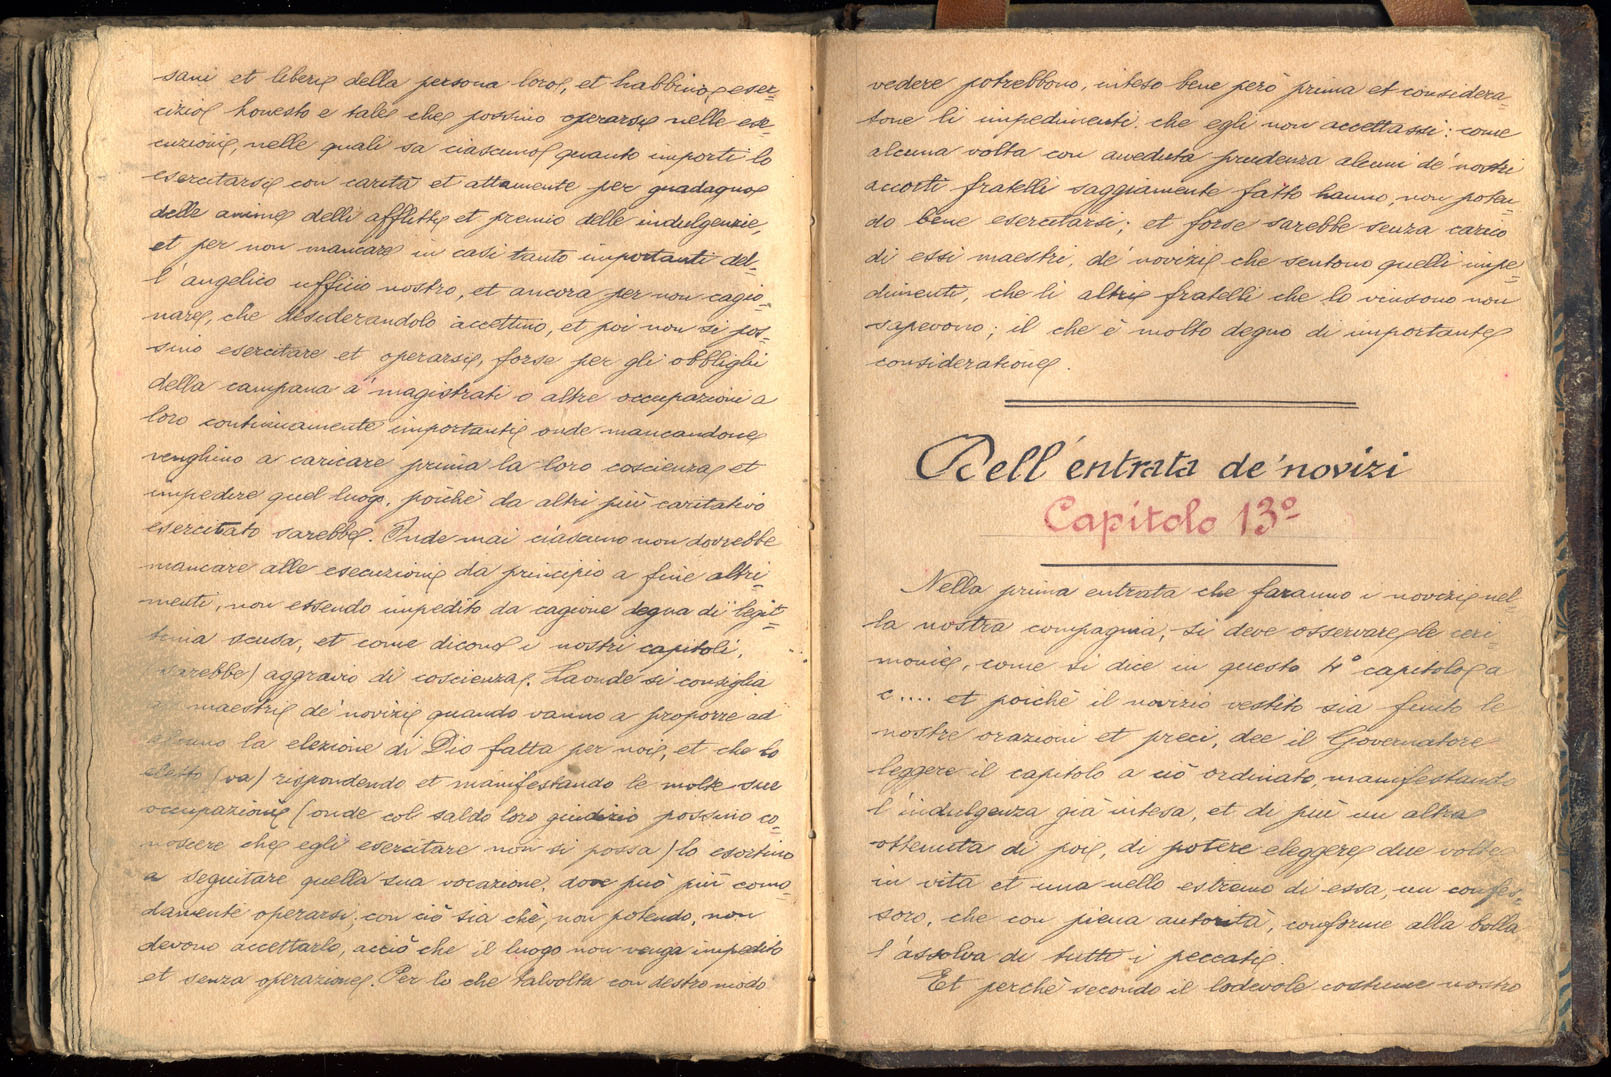 sani et liberi della persona loro, et habbino eser-
cizio honesto e tale che possino operarsi nelle ese-
cuzioni, nelle quali sa ciascuno quanto importi lo
esercitarsi con carità et attamente per guadagno
delle anime delli afflitti et premio delle indulgenzie,
et per non mancare in casi tanto importanti del-
l'angelico ufficio nostro, et ancora per non cagio-
nare, che desiderandolo accettino, et poi non si pos-
sino esercitare et operarsi, forse per gli obblighi
della campana a' magistrati o altre occupazioni a
loro continuamente importanti onde mancandone
venghino a caricare prima la loro coscienza et
impedire quel luogo, poichè da altri più caritativo
esercitato sarebbe. Onde mai ciascuno non dovrebbe
mancare alle esecuzioni da principio a fine altri-
menti, non essendo impedito da cagione degna di legit-
tima scusa, et come dicono i nostri capitoli,
sarebbe) aggravio di coscienza. Laonde si consiglia
maestri de' novizi quando vanno a proporre ad
alcuno la elezione di Dio fatta per noi, et che lo
eletto (va) rispondendo et manifestando le molte sue
occupazioni (onde col saldo loro giudizio possino co-
noscere che egli esercitare non si possa) lo esortino
a seguitare quella sua vocazione, dove può più como-
damente operarsi, con ciò sia chè, non potendo, non
devono accettarlo, acciò che il luogo non venga impedito
et senza operazione. Per lo che talvolta con destro modo
vedere potrebbono, inteso bene però prima et considera-
tone li impedimenti. che egli non accettassi: come
alcuna volta con aveduta prudenza alcuni de' nostri
accorti fratelli saggiamente fatto hanno, non poten-
do bene esercitarsi; et forse sarebbe senza carico
di essi maestri, de' novizi che sentono quelli impe-
dimenti, che li altri fratelli che lo vinsono non
sapevono; il che è molto degno di importante
consideratione.
Dell'entrata de' novizi
Capitolo 13º
Nella prima entrata che faranno i novizi nel-
la nostra compagnia, si deve osservare le ceri-
monie, come si dice in questo 4º capitolo a
c.... et poichè il novizio vestito sia finito le
nostre orazioni et preci, dee il Governatore
leggere il capitolo a ciò ordinato, manifestando
l'indulgenza già intesa, et di più un altra
ottenuta di poi, di potere eleggere due volte
in vita et una nello estremo di essa, un confes-
soro, che con piena autorità, conforme alla bolla
l'assolva di tutti i peccati.
Et perchè secondo il lodevole costume nostro